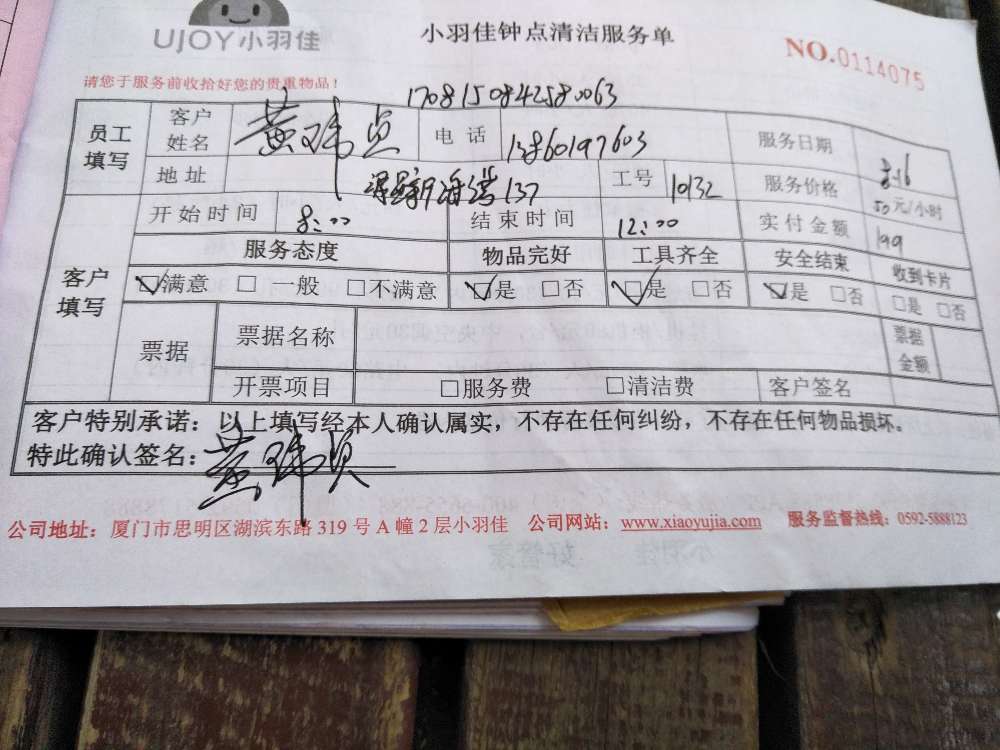 UJOY小羽佳
小羽佳钟点清洁服务单
NO.0114075
请您于服务前收拾好您的贵重物品！
1708150842580063
员工填写 客户姓名 黄玮贞 电话 13860197603 服务日期 8.16
地址 海湾137 工号 10132 服务价格 50元/小时
开始时间 8:00 结束时间 12:00 实付金额 199
客户填写 服务态度 物品完好 工具齐全 安全结束 收到卡片
☑满意 □一般 □不满意 ☑是 □否 ☑是 □否 ☑是 □否 □是 □否
票据 票据名称 票据金额
开票项目 □服务费 □清洁费 客户签名
客户特别承诺：以上填写经本人确认属实，不存在任何纠纷，不存在任何物品损坏。
特此确认签名：黄玮贞
公司地址：厦门市思明区湖滨东路 319 号 A 幢 2 层小羽佳 公司网站：www.xiaoyujia.com 服务监督热线：0592-5888123